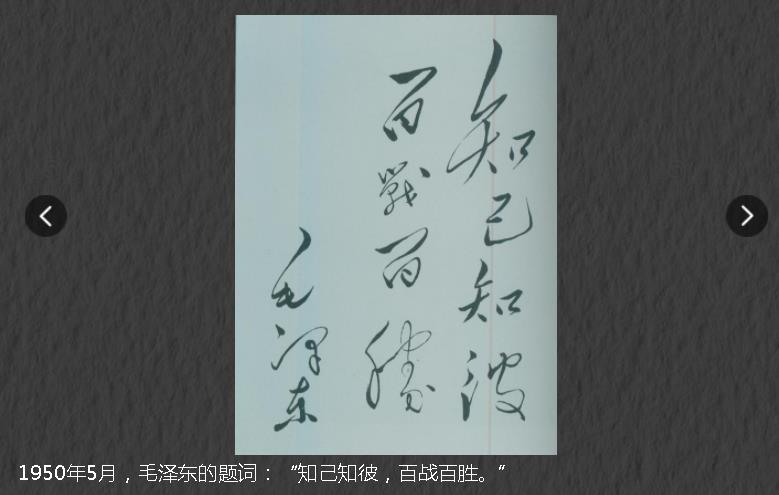 知己知彼
百戰百勝
毛泽东
1950年5月，毛泽东的题词：“知己知彼，百战百胜。”